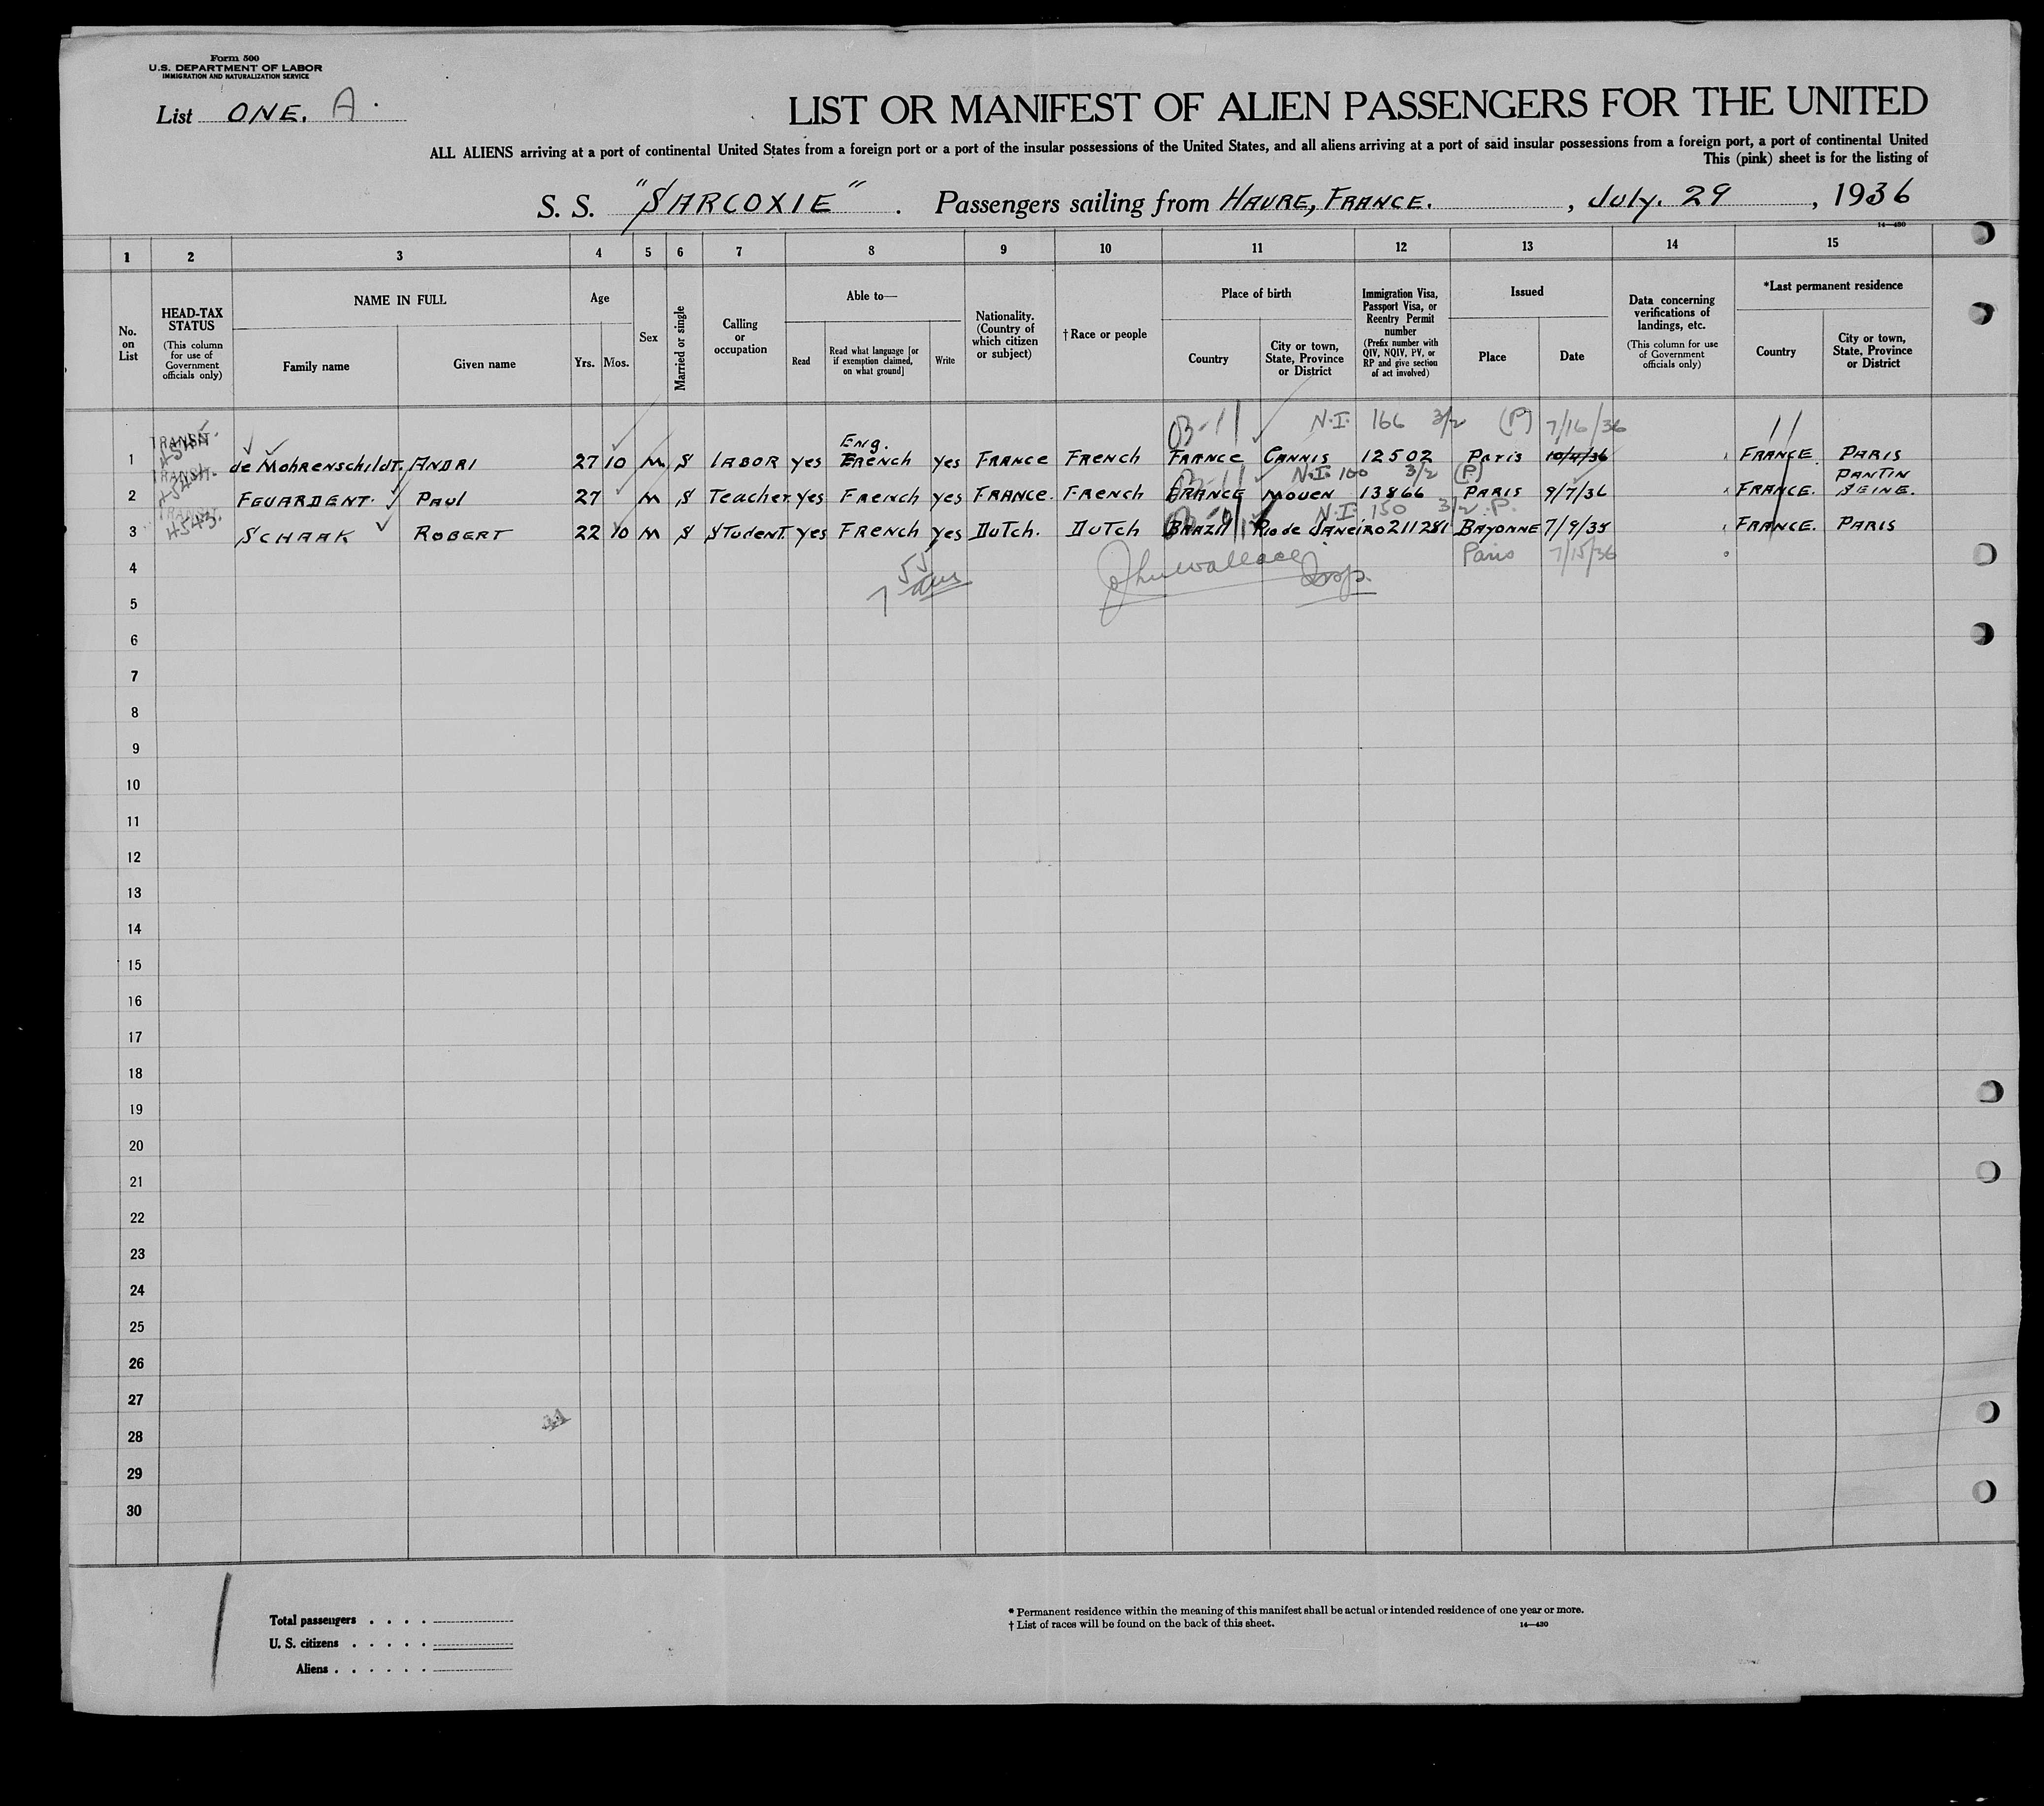 Form 500
U.S. DEPARTMENT OF LABOR
IMMIGRATION AND NATURALIZATION SERVICE
List ONE. A.
LIST OR MANIFEST OF ALIEN PASSENGERS FOR THE UNITED
ALL ALIENS arriving at a port of continental United States from a foreign port or a port of the insular possessions of the United States, and all aliens arriving at a port of said insular possessions from a foreign port, a port of continental United
This (pink) sheet is for the listing of
S. S. "SARCOXIE". Passengers sailing from HAVRE, FRANCE. , July. 29 , 1936
14—430
1 2 3 4 5 6 7 8 9 10 11 12 13 14 15
No. on List
HEAD-TAX STATUS (This column for use of Government officials only)
NAME IN FULL
Family name
Given name
Age
Yrs. Mos.
Sex
Married or single
Calling or occupation
Able to—
Read
Read what language [or if exemption claimed, on what ground]
Write
Nationality. (Country of which citizen or subject)
†Race or people
Place of birth
Country
City or town, State, Province or District
Immigration Visa, Passport Visa, or Reentry Permit number (Prefix number with QIV, NQIV, PV, or RP and give section of act involved)
Issued
Place
Date
Data concerning verifications of landings, etc. (This column for use of Government officials only)
*Last permanent residence
Country
City or town, State, Province or District
N.I. 166 3/2 (P) 7/16/36
1 TRANSIT. de Mohrenschildt. ANDRI 27 10 M S LABOR yes Eng. FRENCH yes FRANCE FRENCH FRANCE CANNIS 12502 Paris 10/4/36 FRANCE. PARIS
N.I. 100 3/2 (P)
2 TRANSIT. FEUARDENT. Paul 27 M S Teacher yes FRENCH yes FRANCE. FRENCH FRANCE MOUEN 13866 PARIS 9/7/36 FRANCE. PANTIN SEINE.
N.I. 150 3/2 P.
3 TRANSIT 4543. SCHAAK ROBERT 22 10 M S STUDENT yes FRENCH yes DUTCH. DUTCH BRAZIL Rio de JANEIRO 211281 BAYONNE 7/9/35 FRANCE. PARIS
4 Paris 7/15/36
55
John Wallace Insp.
5
6
7
8
9
10
11
12
13
14
15
16
17
18
19
20
21
22
23
24
25
26
27
28
29
30
Total passengers . . . .
U. S. citizens . . . . .
Aliens . . . . . .
* Permanent residence within the meaning of this manifest shall be actual or intended residence of one year or more.
† List of races will be found on the back of this sheet.
14—430